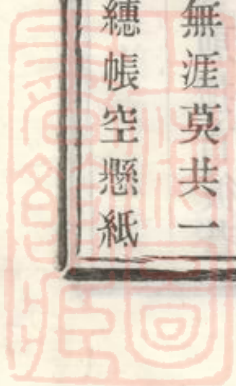 無涯莫共一
繐帳空懸紙